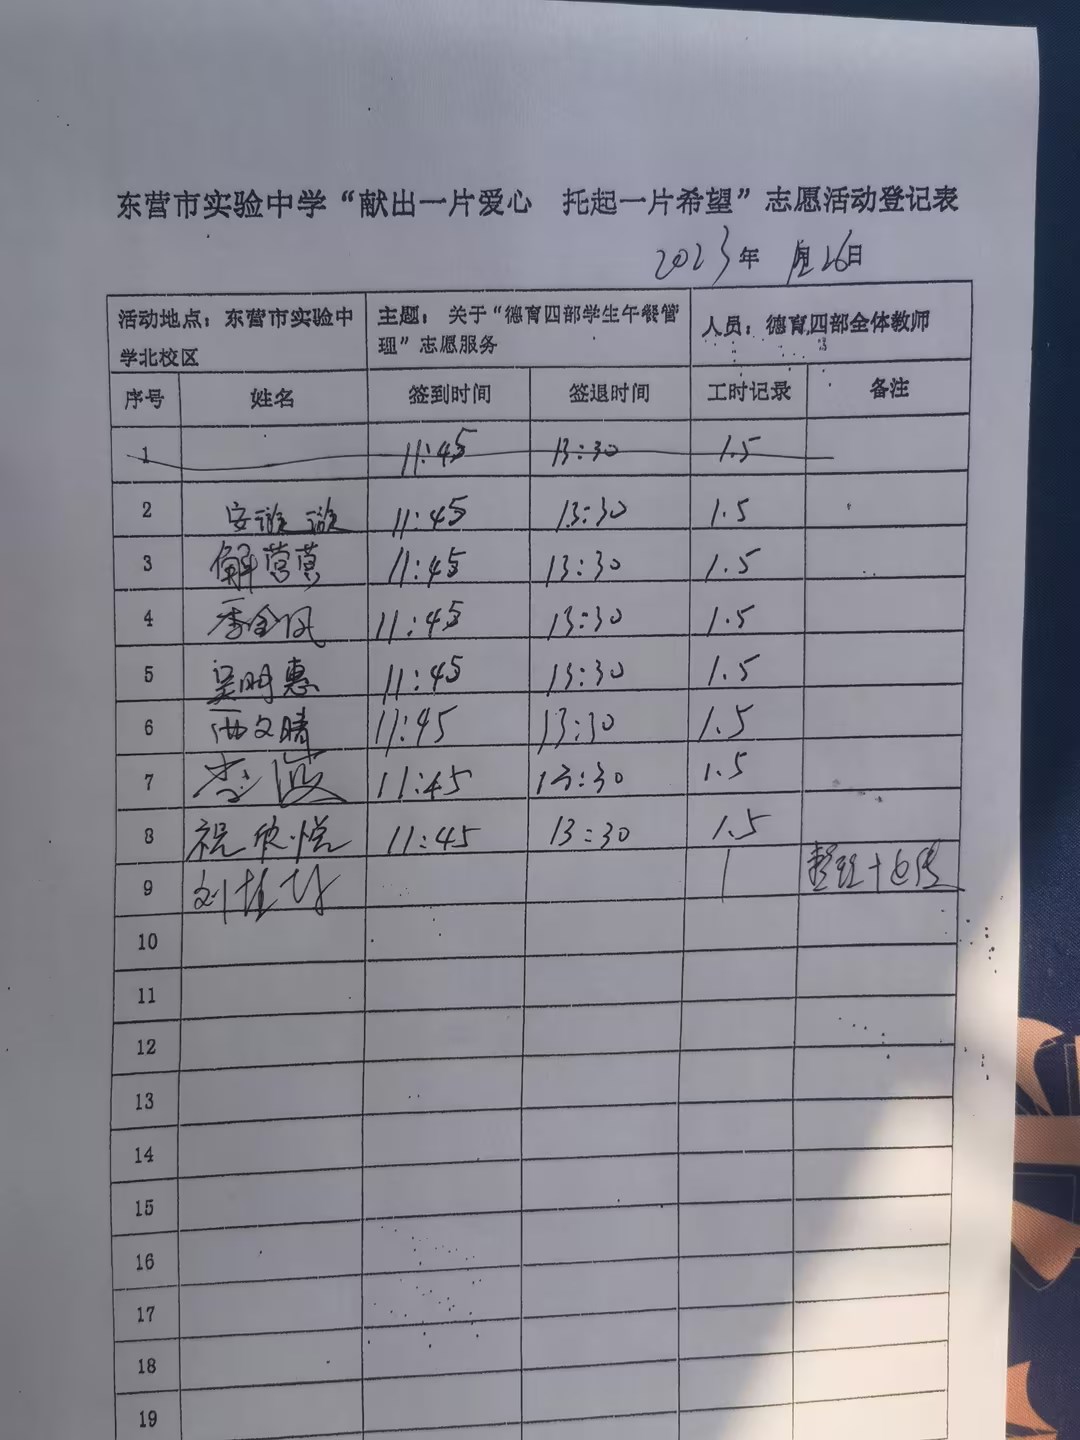 东营市实验中学“献出一片爱心 托起一片希望”志愿活动登记表
2023年 月26日
活动地点：东营市实验中学北校区 主题：关于“德育四部学生午餐管理”志愿服务 人员：德育四部全体教师
序号 姓名 签到时间 签退时间 工时记录 备注
1 11:45 13:30 1.5
2 安 11:45 13:30 1.5
3 解营营 11:45 13:30 1.5
4 季金凤 11:45 13:30 1.5
5 吴明惠 11:45 13:30 1.5
6 文晴 11:45 13:30 1.5
7 李波 11:45 13:30 1.5
8 祝欣悦 11:45 13:30 1.5
9 刘 1 整理+
10
11
12
13
14
15
16
17
18
19